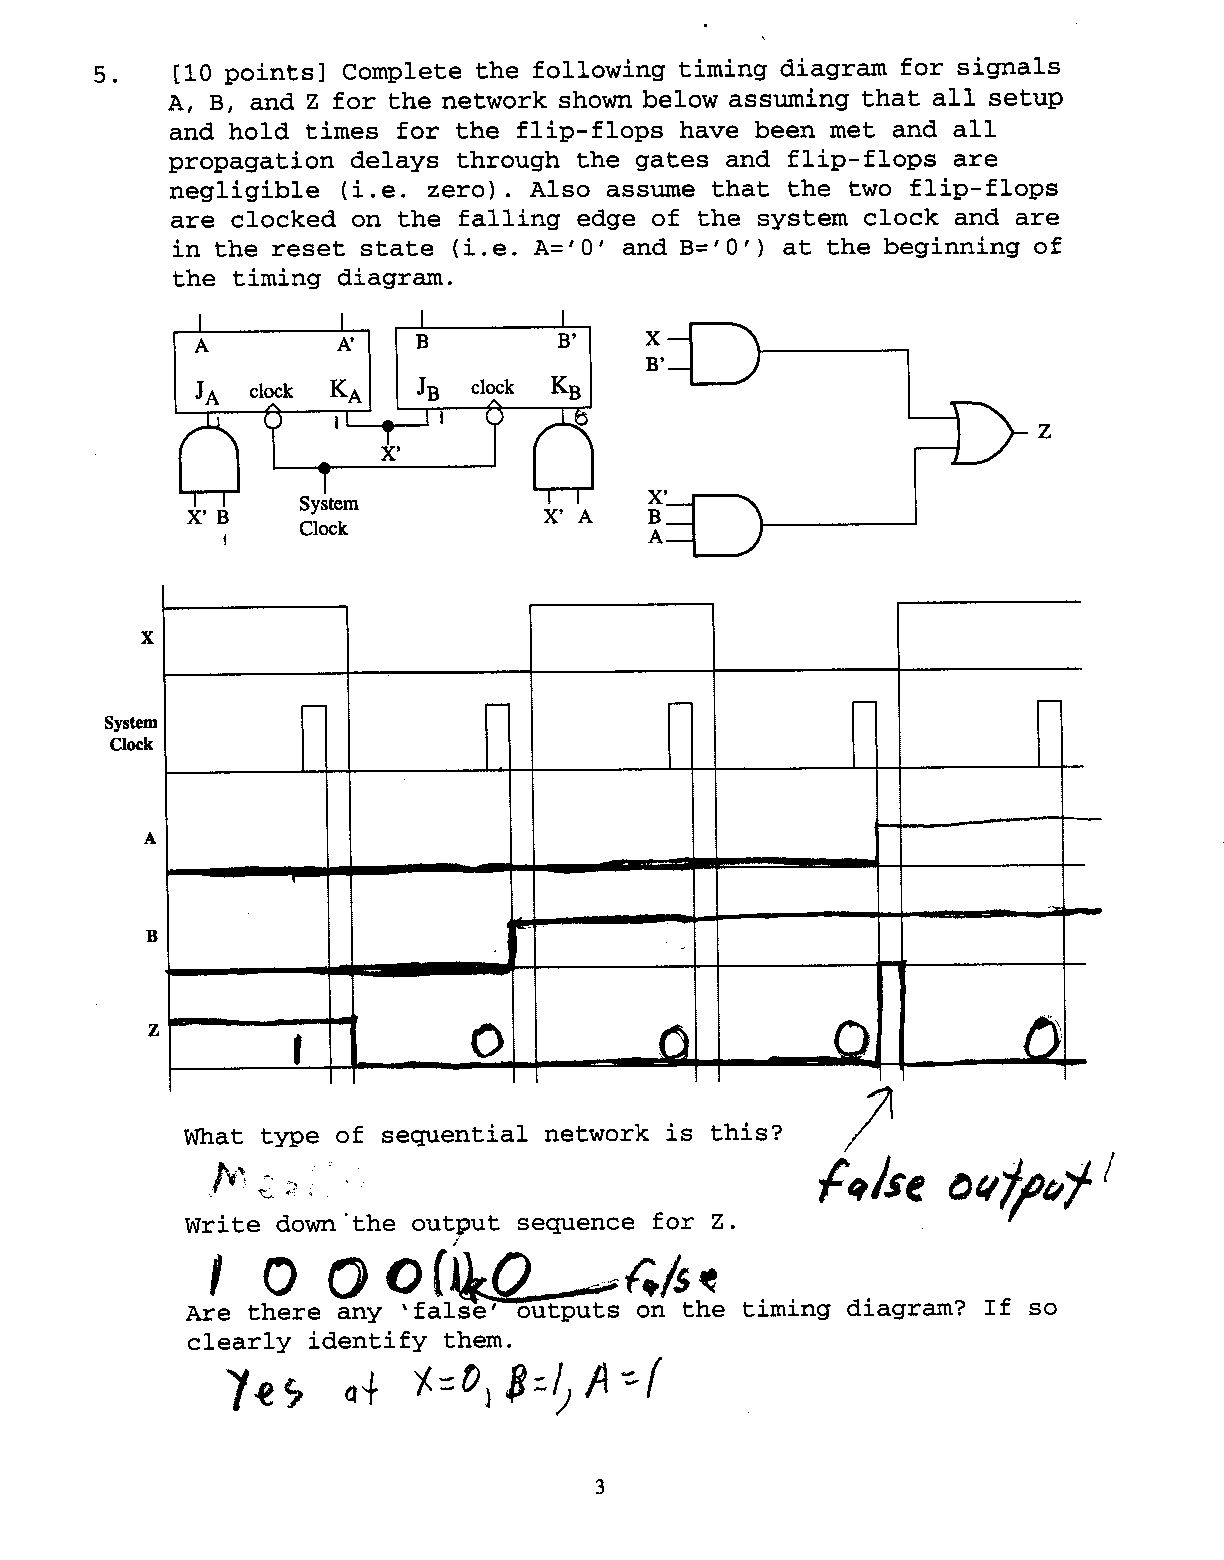 5. [10 points] Complete the following timing diagram for signals
A, B, and Z for the network shown below assuming that all setup
and hold times for the flip-flops have been met and all
propagation delays through the gates and flip-flops are
negligible (i.e. zero). Also assume that the two flip-flops
are clocked on the falling edge of the system clock and are
in the reset state (i.e. A='0' and B='0') at the beginning of
the timing diagram.
A A' B B'
JA clock KA JB clock KB
1 1 1 0
X'
X' B
1
System
Clock
X' A
X
B'
X'
B
A
Z
X
System
Clock
A
B
Z
1 0 0 0 0
What type of sequential network is this?
false output!
Write down the output sequence for Z.
1 0 0 0 (1) 0 false
Are there any 'false' outputs on the timing diagram? If so
clearly identify them.
Yes at X=0, B=1, A=1
3